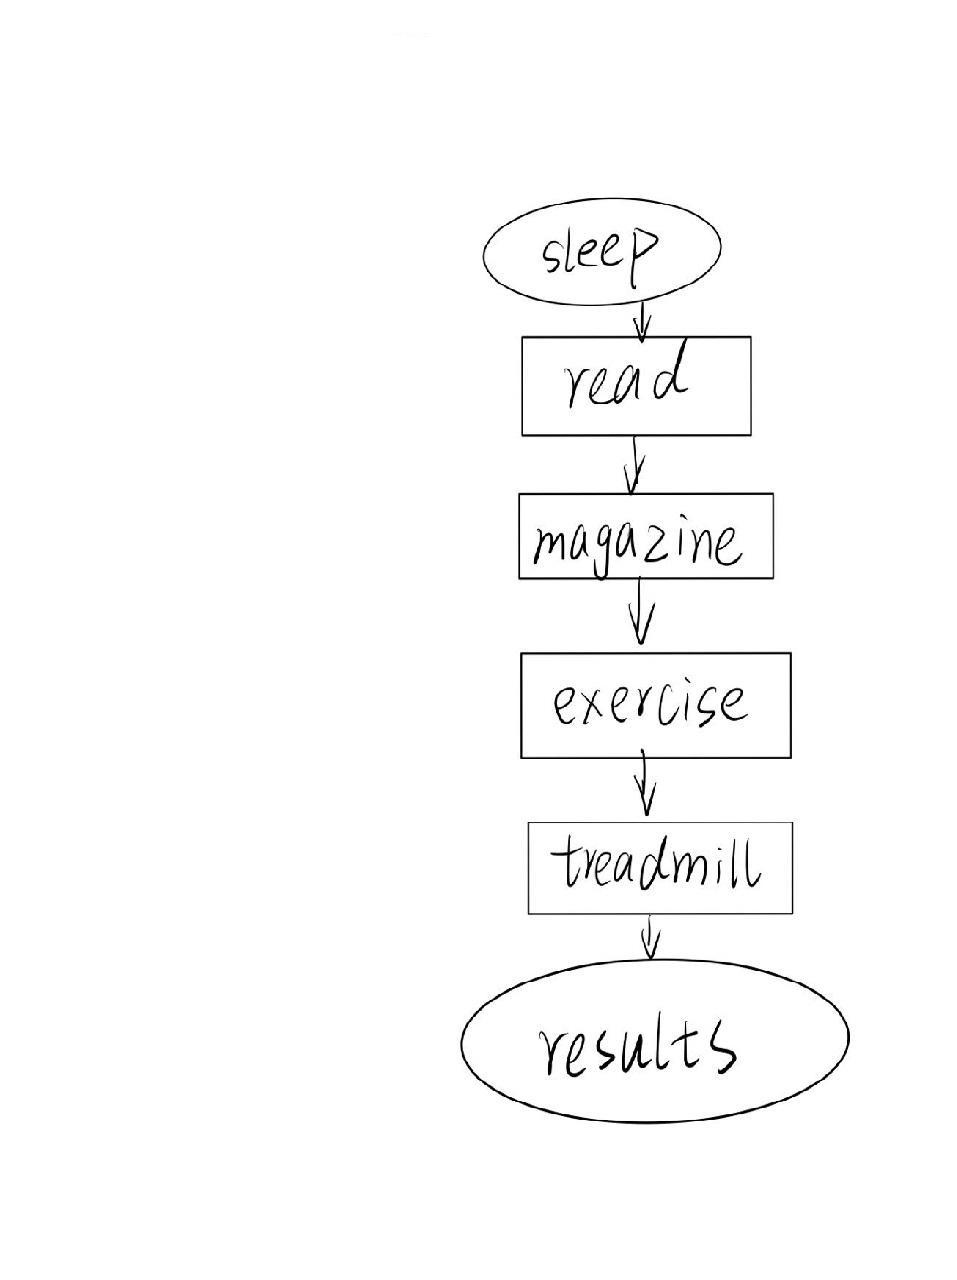 sleep
read
magazine
exercise
treadmill
results